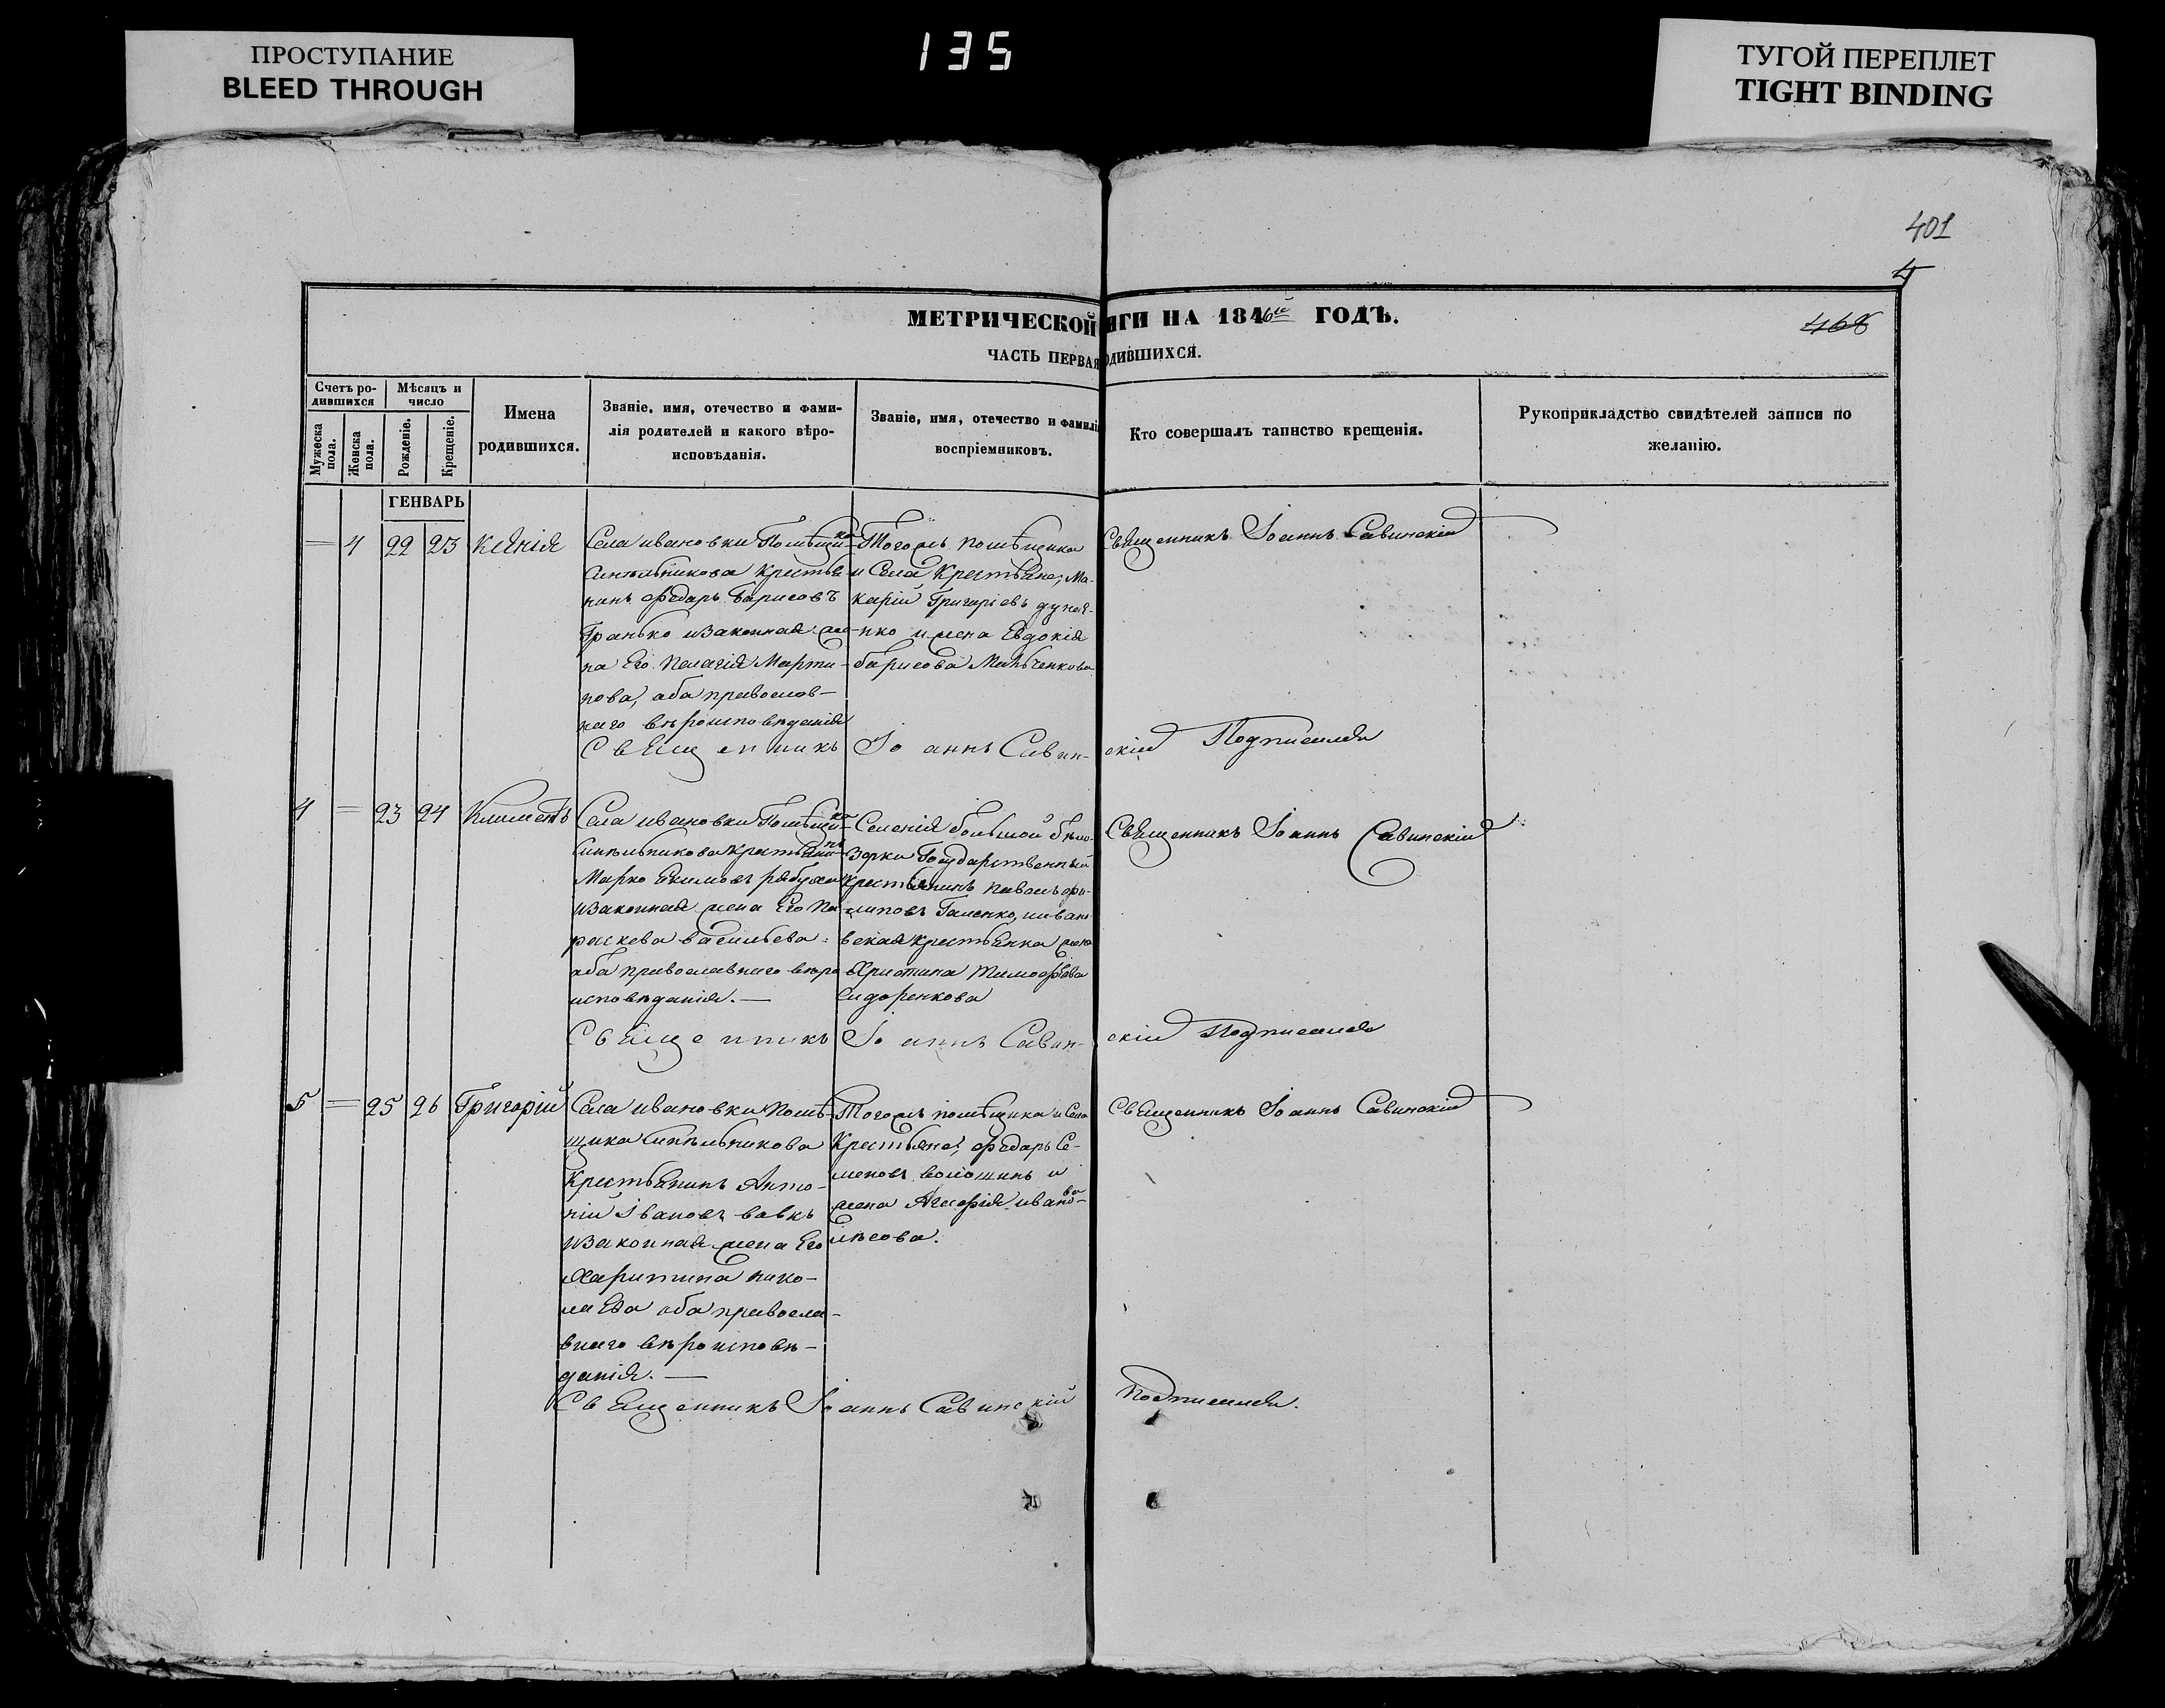 ПРОСТУПАНИЕ
BLEED THROUGH
135
ТУГОЙ ПЕРЕПЛЕТ
TIGHT BINDING
401
4
468
МЕТРИЧЕСКОЙ ИГИ НА 1846й ГОДЪ.
ЧАСТЬ ПЕРВАЯ ОДИВШИХСЯ.
Счетъ ро-
дившихся
Мужеска
пола.
Женска
пола.
Мѣсяцъ и
число
Рожденіе.
Крещеніе.
Имена
родившихся.
Званіе, имя, отечество и фами-
лія родителей и какого вѣро-
исповѣданія.
Званіе, имя, отечество и фамилі
воспріемниковъ.
Кто совершалъ таинство крещенія.
Рукоприкладство свидѣтелей записи по
желанію.
ГЕНВАРЬ
= 4 22 23 Ксенія
Села ивановки Помѣщика
Синельникова крестья-
нинъ федаръ Барисовъ
Гранько изаконная же-
на Его Пелагія Марти-
нова, аба православ-
наго вѣроисповѣданія
Тогожъ помѣщика
и Села Крестьяне; Ма-
карій Григаріевъ дуна-
нко и жена Евдокія
барисова
Священникъ Іоаннъ Савинскій
Священникъ Іоаннъ Савинскій Подписался
4 = 23 24 Климетъ
Села ивановки Помѣщика
Синельникова Крестьянинъ
Марко Екимовъ рябуха
изаконная жена Его Па
раскева васильева.
аба православнаго вѣро
исповѣданія.—
Селенія большой бѣло-
зорки Государственный
крестьянинъ павелъ фи-
липовъ Галенко, ивано
вская крестьянка жена
Христина Тимофѣева
сидоренкова
Священникъ Іоаннъ Савинскій
Священникъ Іоаннъ Савинскій Подписался
5 = 25 26 Григорій
Села ивановки помѣ-
щика синельникова
Крестьянинъ Анто-
ній Івановъ вавкъ
изаконная жена Его
Харитина нико-
лаева аба правосла-
внаго вѣроисповѣ-
данія.—
Тогожъ помѣщика и Села
Крестьяне; федаръ Се-
меновъ волошинъ и
жена Агафія ивано-ва
лѣсова.
Священникъ Іоаннъ Савинскій
Священникъ Іоаннъ Савинскій Подписался.